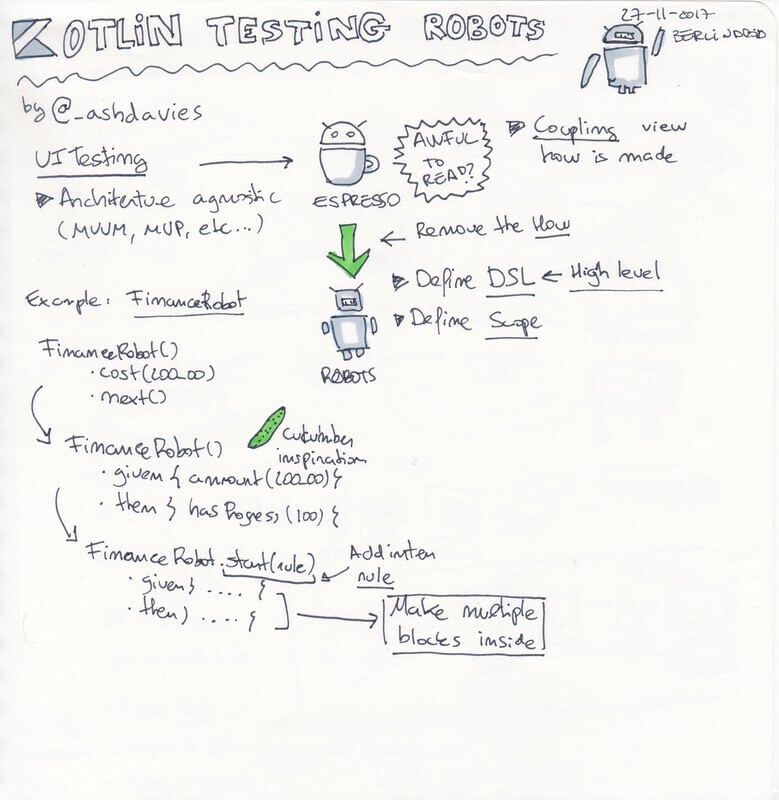 KOTLIN TESTING ROBOTS
27-11-2017
BERLINDROID
by @_ashdavies
UI Testing
ESPRESSO
AWFUL
TO
READ?
Coupling view
how is made
Architecture agnostic
(MVVM, MVP, etc...)
Remove the How
Define DSL ← High level
Define Scope
ROBOTS
Example: FinanceRobot
FinanceRobot()
· cost(200_00)
· next()
FinanceRobot()
· given { amount(200_00) {
· then } hasProgess (100) {
cucumber
inspiration
FinanceRobot.start(rule)
· given } .... {
· then } .... {
Add inten
rule
Make multiple
blocks inside